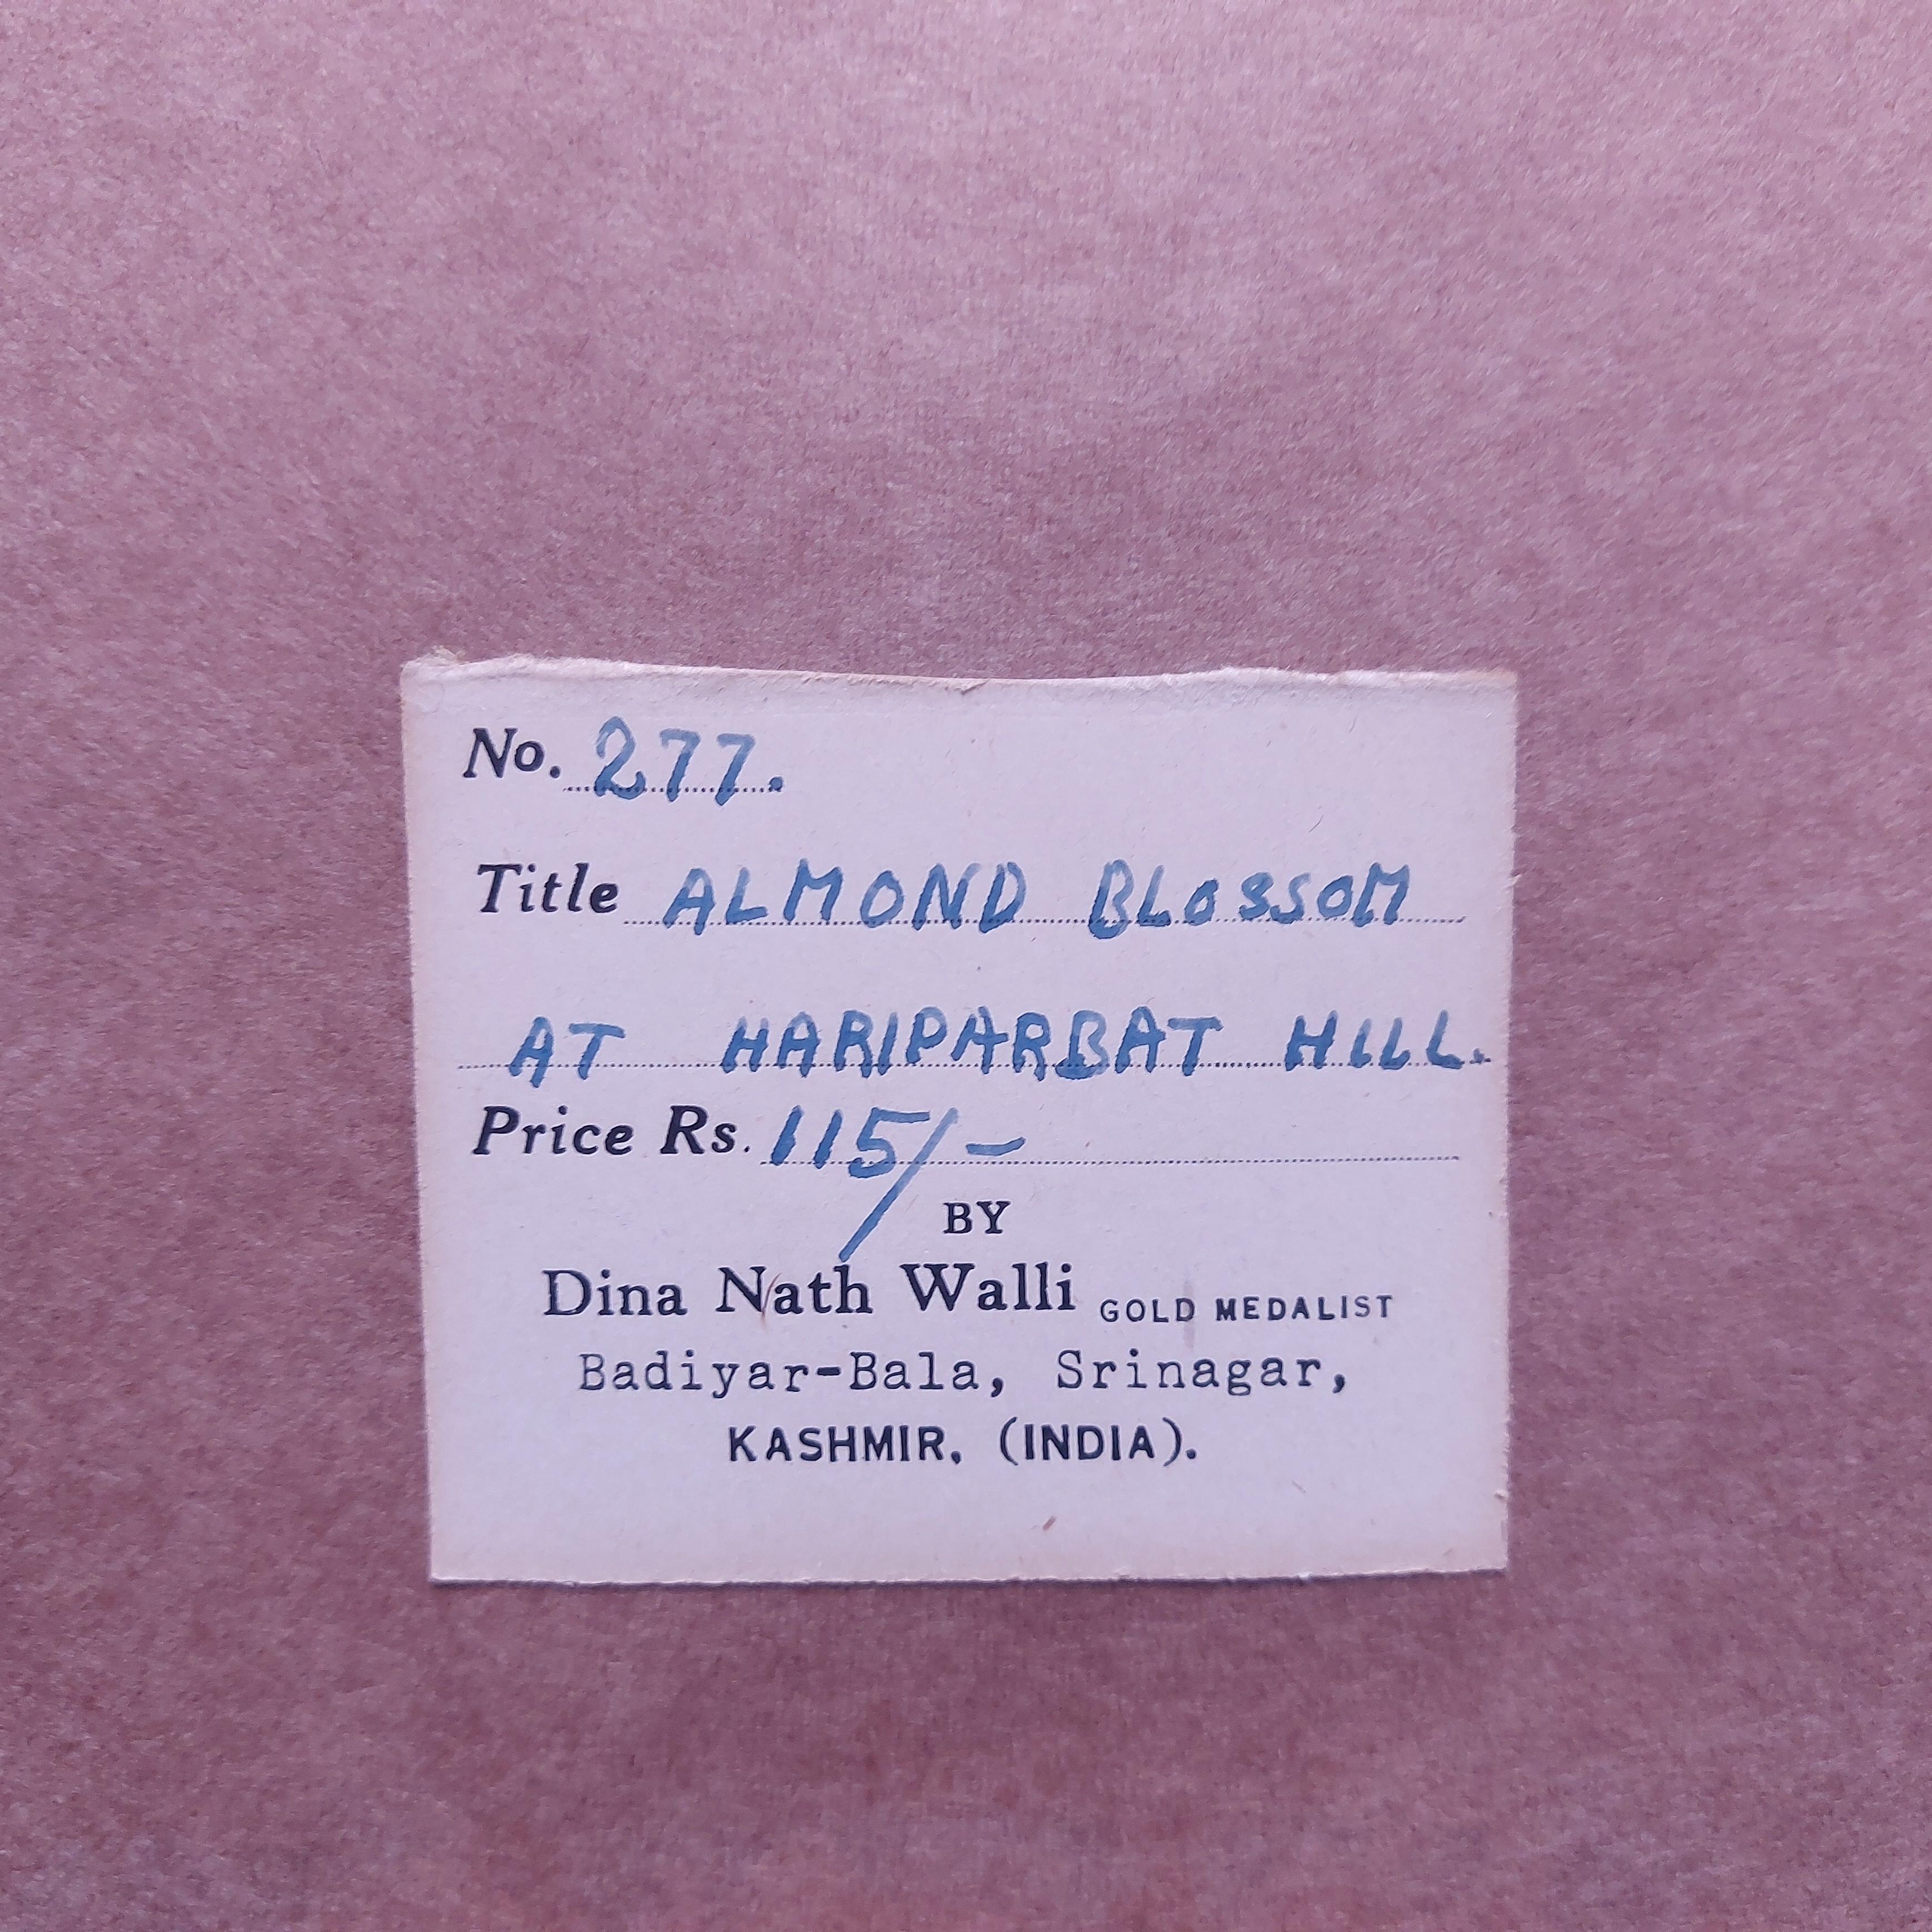 No. 277.
Title ALMOND BLOSSOM
AT HARIPARBAT HILL.
Price Rs. 115/-
BY
Dina Nath Walli GOLD MEDALIST
Badiyar-Bala, Srinagar,
KASHMIR, (INDIA).